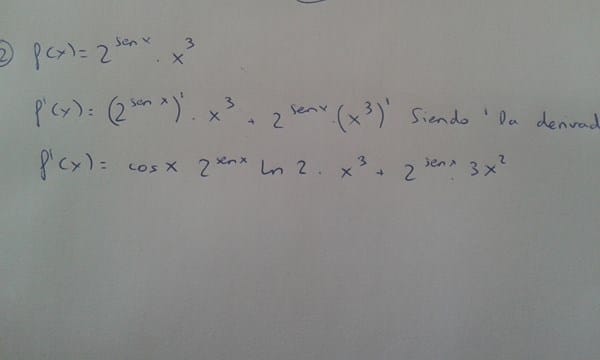 2) f(x) = 2^{sen x} · x^3
f'(x) = (2^{sen x})' · x^3 + 2^{sen x} · (x^3)' Siendo ' la derivad
f'(x) = cos x 2^{sen x} ln 2 · x^3 + 2^{sen x} · 3x^2